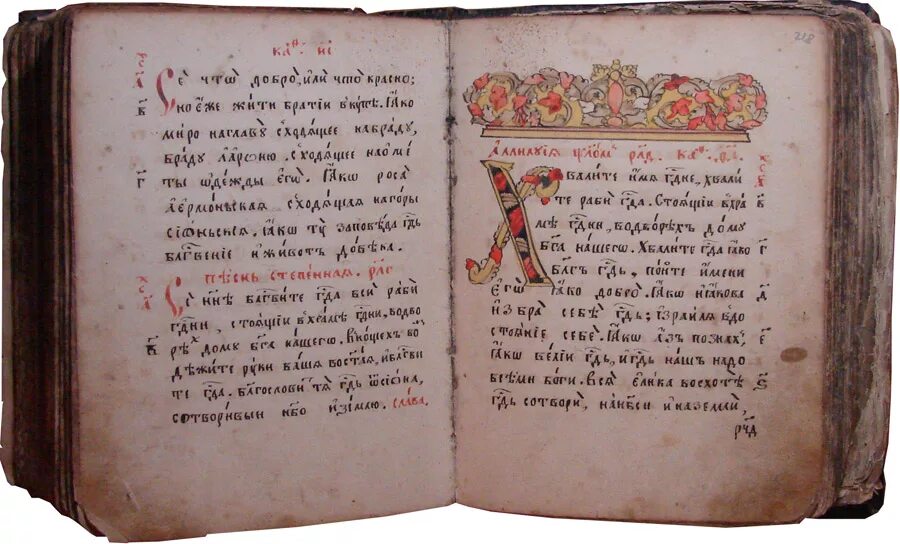 каѳ҃ иı
Се что̀ добро̀, или что красно;
но еже жити братїи вкупѣ. Ꙗко
миро наглавꙋ сходящее набрадꙋ,
брадꙋ а҆арѡню. сходящее наѡме
ты ѡдежды егѡ. Ꙗкѡ роса
аермоньская сходящая нагоры
сїѡньскїя. ꙗкѡ тꙋ заповѣда гд҃ь
блг҃венїе иживотъ довѣка.
пѣснь степенная. рл҃г
Се нн҃ѣ блг҃вите гд҃а вси раби
гд҃ни, стоящїи вхрамѣ гд҃ни, водво
рѣхъ домꙋ бг҃а нашего. Внощехъ воз
дѣжите рꙋки вашя востая, иблг҃ви
те гд҃а. Блг҃ослови тя гд҃ь ѿсїѡна,
сотворивыи нб҃о иземлю. слава.
218
Аллилꙋїя ѱалом рл҃д. каѳ҃
Хвалите имя гд҃не, хвали
те раби гд҃а. Стоящїи вхра
мѣ гд҃ни, водворѣхъ домꙋ
бг҃а нашего. Хвалите гд҃а ꙗко
блг҃ъ гд҃ь, поите имени
егѡ ꙗко добро. Ꙗкѡ иꙗкова
избра себѣ гд҃ь; їзраиля вдо
стоянїе себѣ. Ꙗкѡ азъ познахъ,
ꙗкѡ велїи гд҃ь, игд҃ь нашъ надо
всѣми боги. Вся елика восхотѣ
гд҃ь сотвори, нанб҃си иназемли,
рч҃д